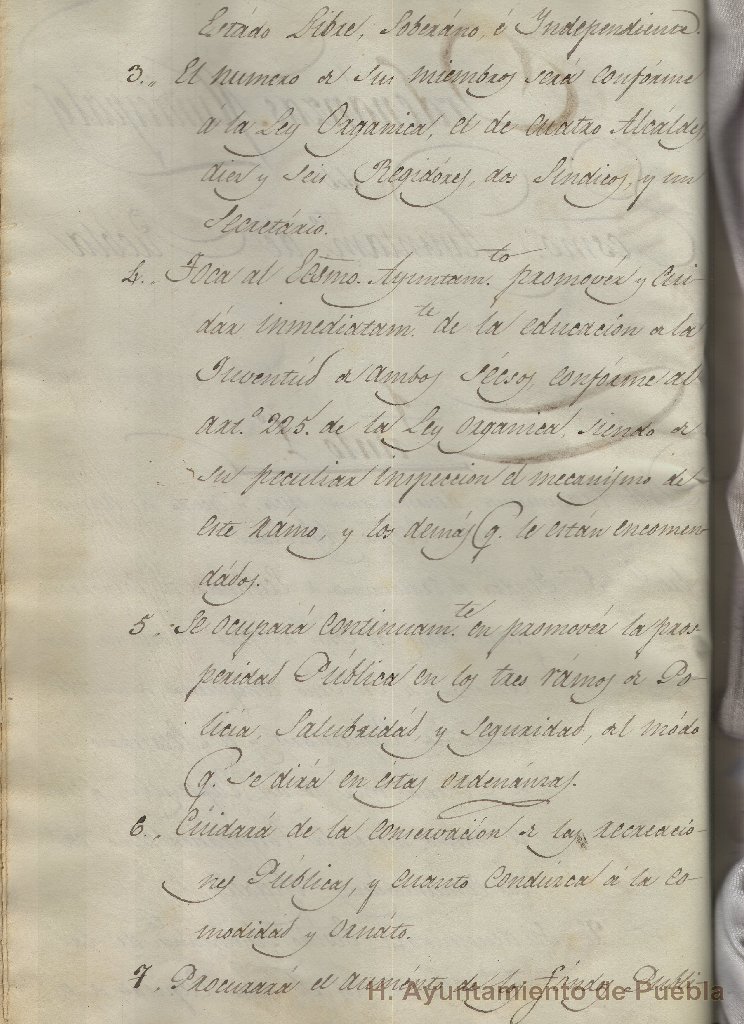 Estádo Libre, Soberáno, é Independiente.
3., El numero de sus miembros será confórme
a la Ley Organica, el de cuatro Alcáldes,
diez y seis Regidóres, dos Síndicos, y un
Secretário.
4., Toca al Ecsmo. Ayuntam.to promovér y cui-
dár inmediatam.te de la educación de la
Juventúd de ambos sécsos, confórme al
art.o 225. de la Ley organica, siendo de
su peculiar inspeccion el mecanismo de
este rámo, y los demás q. le están encomen
dádos.
5., Se ocupará continuam.te en promovér la pros-
peridad Pública en los tres rámos de Po-
licía, Salubridád y seguridad, del módo
q. se dirá en éstas ordenánzas.
6., Cuidará de la conservación de las recreacio-
nes Públicas, y cuanto condúzca á la co-
modidad y ornáto.
7., Procurará el aumento de los fóndos Publi
H. Ayuntamiento de Puebla